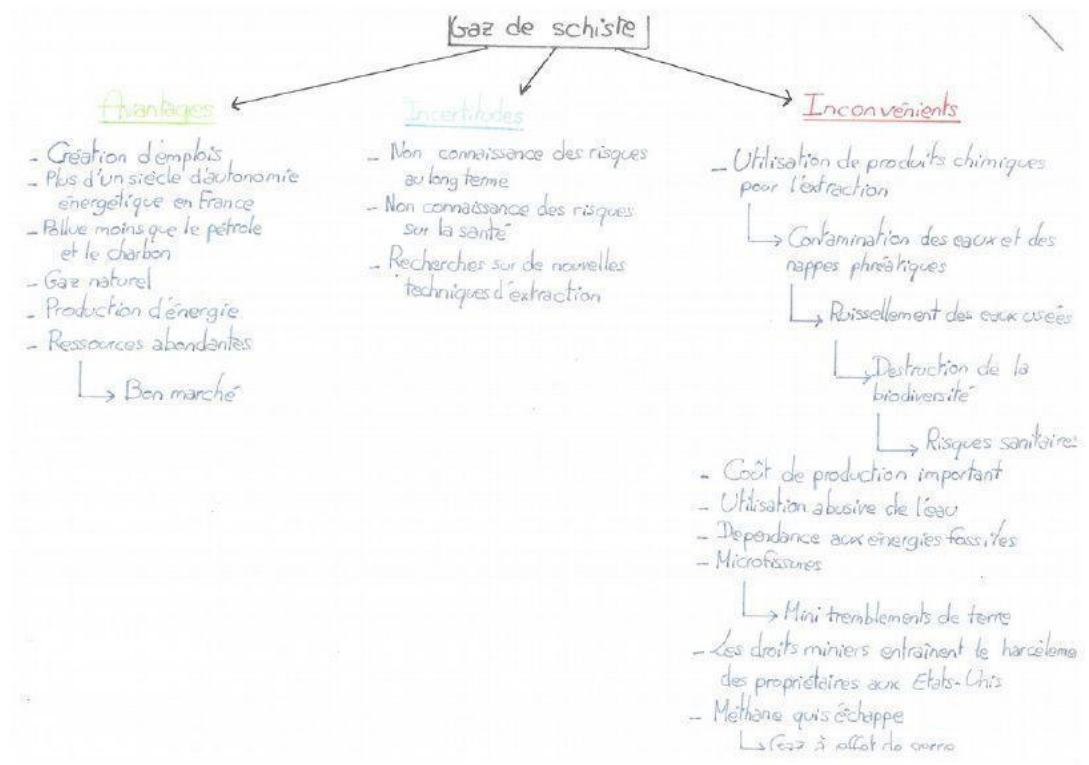 Gaz de schiste
Avantages
- Création d'emplois
- Plus d'un siècle d'autonomie
énergétique en France
- Pollue moins que le pétrole
et le charbon
- Gaz naturel
- Production d'énergie
- Ressources abondantes
→ Bon marché
Incertitudes
- Non connaissance des risques
au long terme
- Non connaissance des risques
sur la santé
- Recherches sur de nouvelles
techniques d'extraction
Inconvénients
- Utilisation de produits chimiques
pour l'extraction
→ Contamination des eaux et des
nappes phréatiques
→ Ruissellement des eaux usées
→ Destruction de la
biodiversité
→ Risques sanitaires
- Coût de production important
- Utilisation abusive de l'eau
- Dépendance aux énergies fossiles
- Microfissures
→ Mini tremblements de terre
- Les droits miniers entraînent le harcèleme
des propriétaires aux Etats-Unis
- Méthane qui s'échappe
→ Gaz à effet de serre